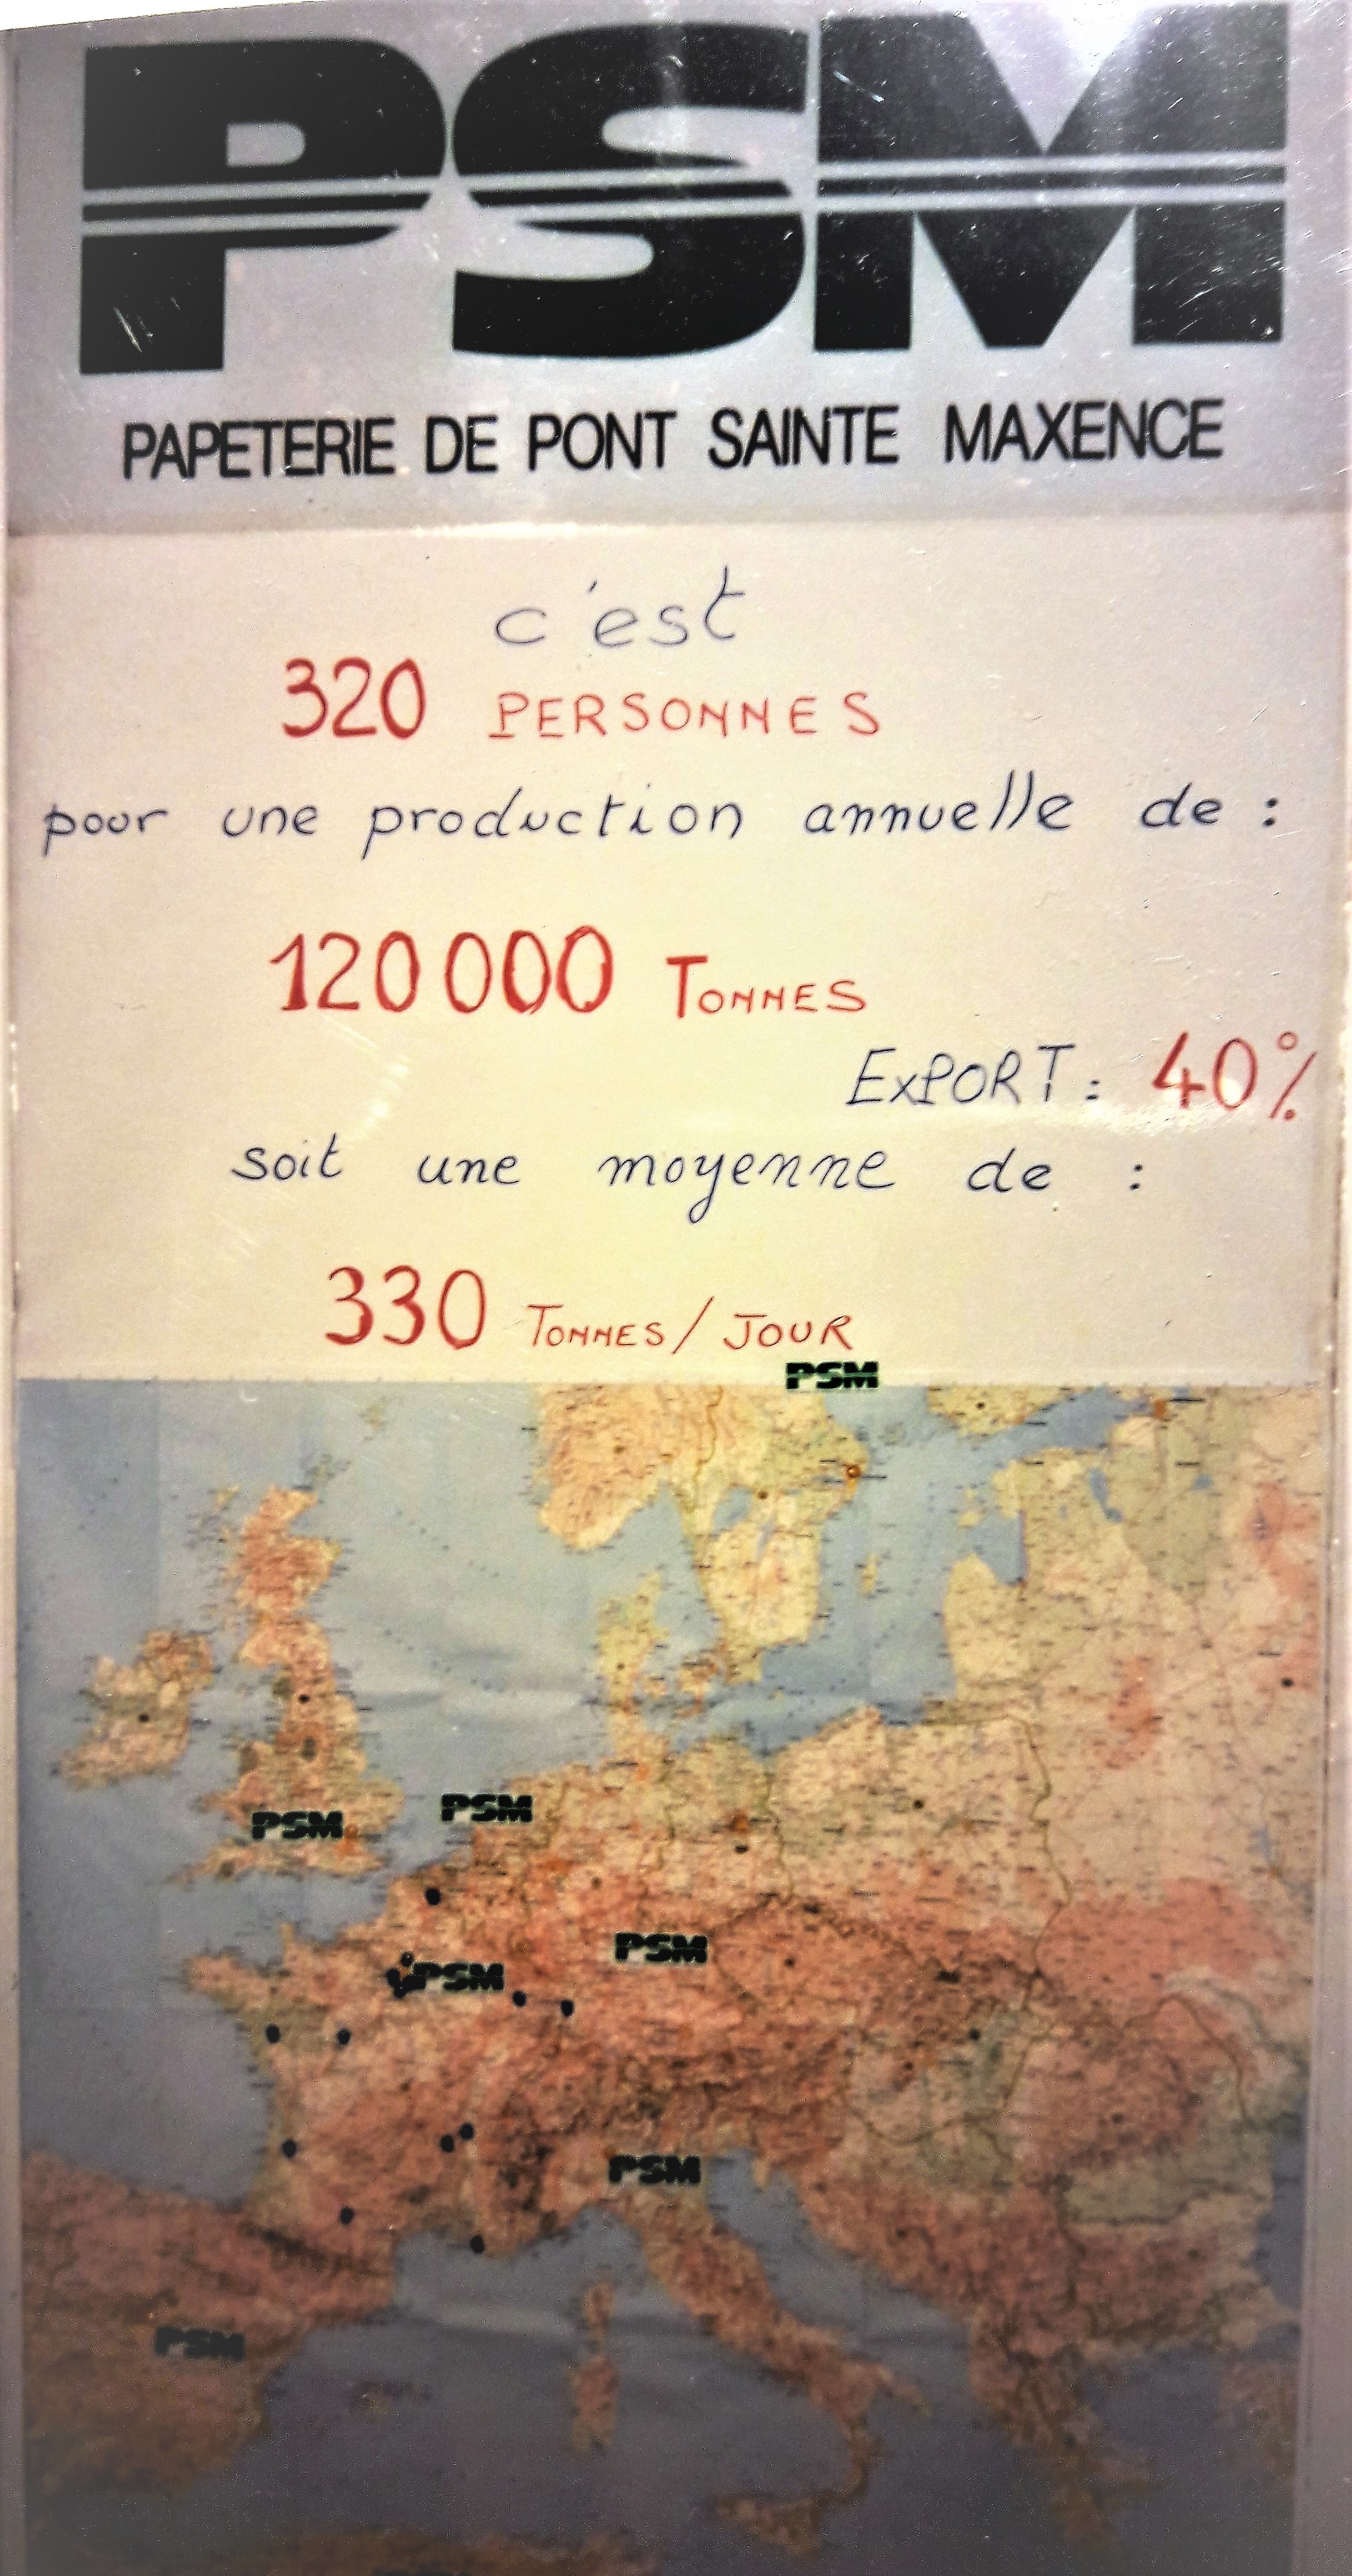 PSM
PAPETERIE DE PONT SAINTE MAXENCE
c'est
320 PERSONNES
pour une production annuelle de :
120 000 TONNES
EXPORT : 40%
soit une moyenne de :
330 TONNES / JOUR
PSM
PSM
PSM
PSM
PSM
PSM
PSM